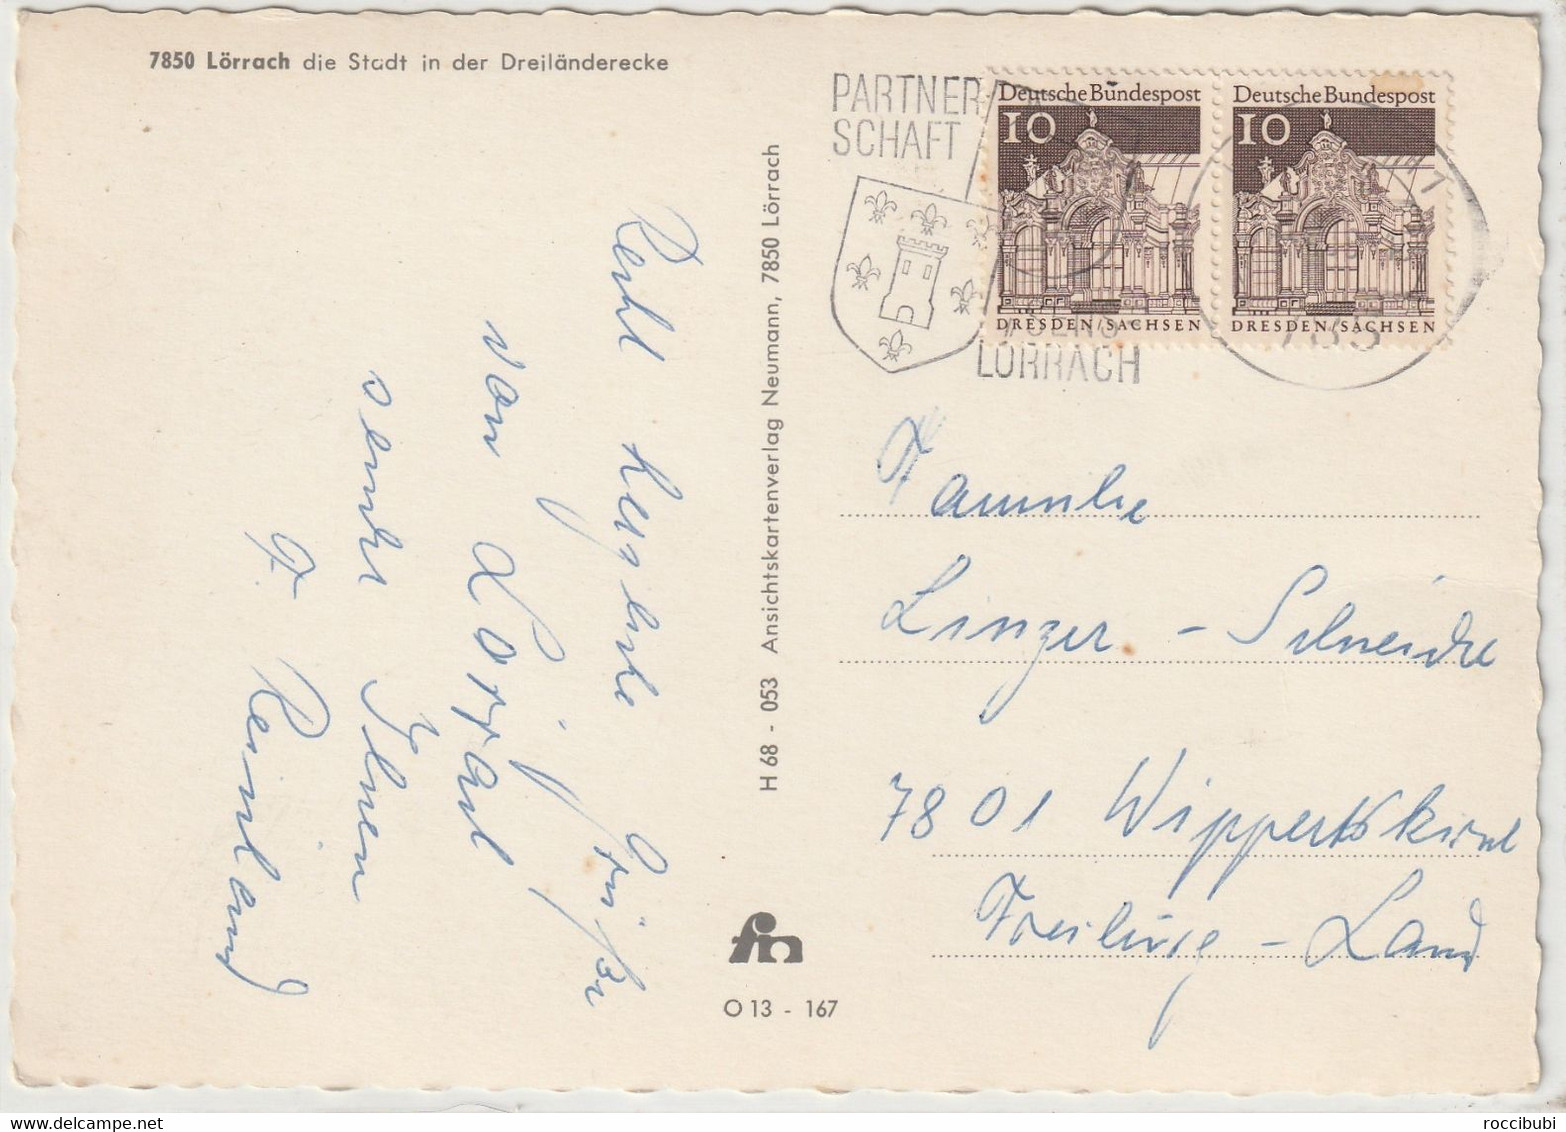 7850 Lörrach die Stadt in der Dreiländerecke
PARTNER-
SCHAFT
SENS
LÖRRACH
785
Deutsche Bundespost
10
DRESDEN/SACHSEN
Deutsche Bundespost
10
DRESDEN/SACHSEN
Recht herzliche Grüße
von Lörrach
sendet Ihnen
F. Reinland
H 68 - 053 Ansichtskartenverlag Neumann, 7850 Lörrach
fm
O 13 - 167
Familie
Linzer - Schneider
7801 Wippertskirch
Freiburg - Land
roccibubi